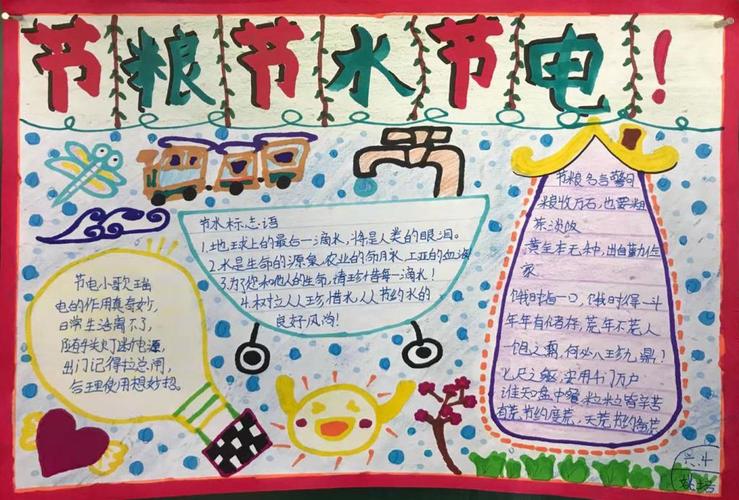 节粮节水节电！
节水标志语
1.地球上的最后一滴水，将是人类的眼泪。
2.水是生命的源泉、农业的命脉、工业的血液
3.为了您和他人的生命，请珍惜每一滴水！
4.树立人人珍惜水，人人节约水的
良好风尚！
节电小歌瑶
电的作用真奇妙，
日常生活离不了，
随手关灯断电源，
出门记得拉总闸，
合理使用想妙招。
节粮名言警句
粮收万石，也要粗
茶淡饭
黄金本无种，出自勤俭
家
饿时省一口，饿时得一斗
年年有储存，荒年不荒人
一饱之需，何必八珍九鼎？
七尺之躯，实用千门万户
谁知盘中餐，粒粒皆辛苦
节约度荒，天荒节约
六.4